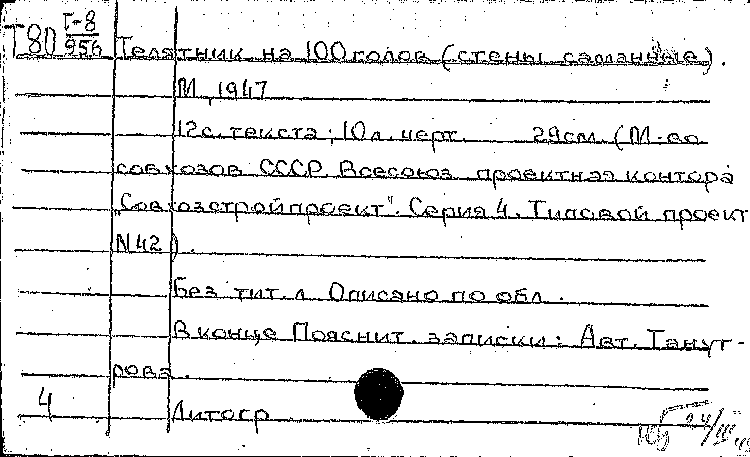 Т80 Т-8
956
Телятник на 100 голов (стены саманные).
М, 1947
12с. текста; 10л. черт. 29см. (М-во
совхозов СССР. Всесоюз. проектная контора
„Совхозстройпроект". Серия 4. Типовой проект
N42).
Без тит. л. Описано по обл.
В конце Пояснит. записки: Авт. Танут-
рова.
4 Литогр
24/III